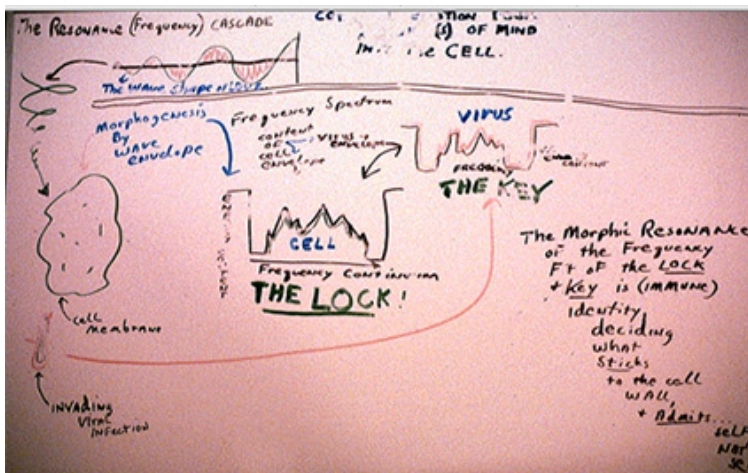 The RESONANCE (Frequency) CASCADE
(S) OF MIND
THE CELL.
The WAVE Shape
Morphogenesis
By
WAVE
ENVELOPE
Frequency Spectrum
content
OF
cell
envelope
VIRUS
envelope
VIRUS
FREQUENCY
THE KEY
CELL
Frequency Continuum
THE LOCK!
Cell
Membrane
INVADING
VIRAL
INFECTION
The Morphic RESONANCE
of the Frequency
Fit of the LOCK
+ Key is (IMMUNE)
Identity
deciding
what
Sticks
to the cell
WALL,
+ Admits...
self
NOT